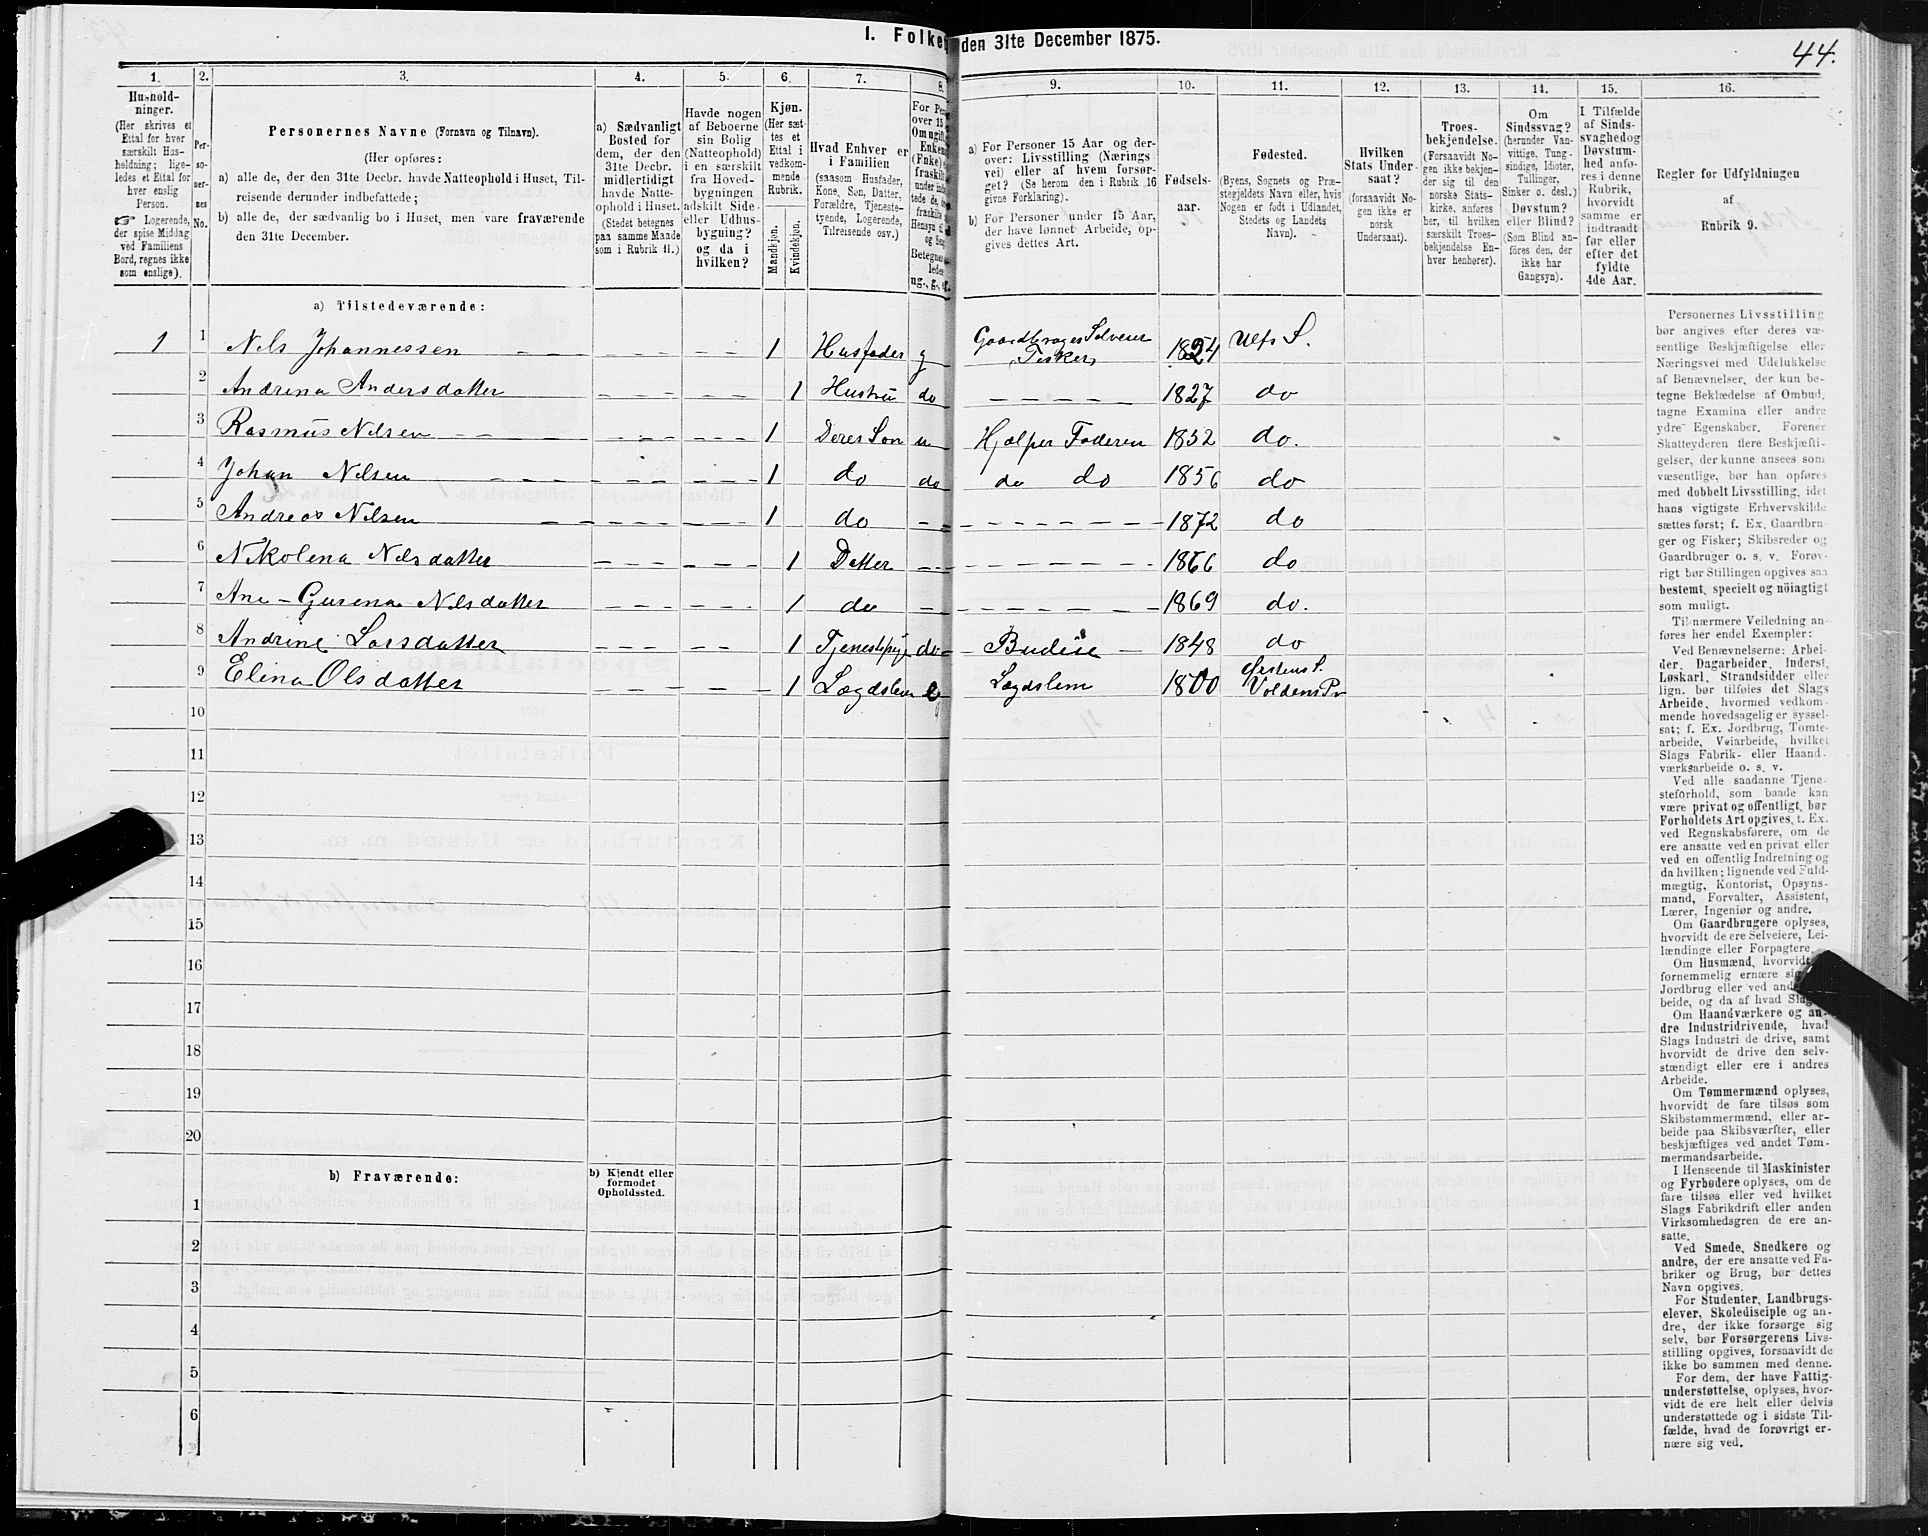 1. Folke den 31te December 1875.
44.
1. 2. 3. 4. 5. 6. 7. 8. 9. 10. 11. 12. 13. 14. 15. 16.
Hushold-
ninger.
(Her skrives et
Ettal for hver
særskilt Hus-
holdning; lige-
ledes et Ettal for
hver enslig
Person.
☞ Logerende,
der spise Middag
ved Familiens
Bord, regnes ikke
som enslige).
Per-
so-
ner-
nes
No.
Personernes Navne (Fornavn og Tilnavn).
(Her opføres:
a) alle de, der den 31te Decbr. havde Natteophold i Huset, Til-
reisende derunder indbefattede;
b) alle de, der sædvanlig bo i Huset, men vare fraværende
den 31te December.
a) Sædvanligt
Bosted for
dem, der den
31te Decbr.
midlertidigt
havde Natte-
ophold i Huset.
(Stedet betegnes
paa samme Maade
som i Rubrik 11.)
Havde nogen
af Beboerne
sin Bolig
(Natteophold)
i en særskilt
fra Hoved-
bygningen
adskilt Side-
eller Udhus-
bygning?
og da i
hvilken?
Kjøn.
(Her sæt-
tes et
Ettal i
vedkom-
mende
Rubrik.
Mandkjøn.
Kvindekjøn.
Hvad Enhver er
i Familien
(saasom Husfader,
Kone, Søn, Datter,
Forældre, Tjeneste-
tyende, Logerende,
Tilreisende osv.)
For Pe
over 15
Om ugift
Enkem
(Enke) e
fraskilt
under ind
tede de,
fraskilte
Hensyn t
og Sen
Betegnes
ledes
ug., g., e
a) For Personer 15 Aar og der-
over: Livsstilling (Nærings
vei) eller af hvem forsør-
get? (Se herom den i Rubrik 16
givne Forklaring).
b) For Personer under 15 Aar,
der have lønnet Arbeide, op-
gives dettes Art.
Fødsels-
aar.
Fødested.
(Byens, Sognets og Præ-
stegjeldets Navn eller, hvis
Nogen er født i Udlandet,
Stedets og Landets
Navn).
Hvilken
Stats Under-
saat?
(forsaavidt No-
gen ikke er
norsk
Undersaat).
Troes-
bekjendelse.
(Forsaavidt No-
gen ikke bekjen-
der sig til den
norske Stats-
kirke, anføres
her, til hvilken
særskilt Troes-
bekjendelse En-
hver henhører).
Om
Sindssvag?
(herunder Van-
vittige, Tung-
sindige, Idioter,
Tullinger,
Sinker o. desl.)
Døvstum?
eller Blind?
(Som Blind an-
føres den, der
ikke har
Gangsyn).
I Tilfælde
af Sinds-
svaghed og
Døvstum-
hed anfø-
res i denne
Rubrik,
hvorvidt
samme er
indtraadt
før eller
efter det
fyldte
4de Aar.
Regler for Udfyldningen
af
Rubrik 9.
a) Tilstedeværende:
1 1 Nils Johannessen 1 Husfader g Gaardbruger Selveier Fisker 1824 Ulfs S.
2 Andrina Andersdatter 1 Hustru do 1827 do
3 Rasmus Nilsen 1 Deres Søn u Hjælper Faderen 1852 do.
4 Johan Nilsen 1 do do do do 1856 do
5 Andreas Nilsen 1 do 1872 do
6 Nikolena Nilsdatter 1 Datter 1866 do
7 Ane-Gurena Nilsdatter 1 do 1869 do.
8 Andrine Larsdatter 1 Tjenestepige do Budeie 1848 do
9 Elina Olsdatter 1 Lægdslem e Lægdslem 1800 Ørstens S. Voldens Pr
10
11
12
13
14
15
16
17
18
19
20
b) Fraværende:
b) Kjendt eller
formodet
Opholdssted.
1
2
3
4
5
6
Personernes Livsstilling
bør angives efter deres væ-
sentlige Beskjæftigelse eller
Næringsvei med Udelukkelse
af Benævnelser, der kun be-
tegne Beklædelse af Ombud,
tagne Examina eller andre
ydre Egenskaber. Forener
Skatteyderen flere Beskjæfti-
gelser, der kunne ansees som
væsentlige, bør han opføres
med dobbelt Livsstilling, idet
hans vigtigste Erhvervskilde
sættes først; f. Ex. Gaardbru-
ger og Fisker; Skibsreder og
Gaardbruger o. s. v. Forøv-
rigt bør Stillingen opgives saa
bestemt, specielt og nöiagtigt
som muligt.
Til nærmere Veiledning an-
føres her endel Exempler:
Ved Benævnelserne: Arbei-
der, Dagarbeider, Inderst,
Løskarl, Strandsidder eller
lign. bør tilføies det Slags
Arbeide, hvormed vedkom-
mende hovedsagelig er syssel-
sat; f. Ex. Jordbrug, Tomte-
arbeide, Veiarbeide, hvilket
Slags Fabrik- eller Haand-
værksarbeide o. s. v.
Ved alle saadanne Tjene-
steforhold, som baade kan
være privat og offentligt, bør
Forholdets Art opgives, t. Ex.
ved Regnskabsførere, om de
ere ansatte ved en privat eller
ved en offentlig Indretning og
da hvilken; lignende ved Fuld-
mægtig, Kontorist, Opsyns-
mand, Forvalter, Assistent,
Lærer, Ingeniør og andre.
Om Gaardbrugere oplyses,
hvorvidt de ere Selveiere, Lei-
lændinge eller Forpagtere.
Om Husmænd, hvorvidt
fornemmelig ernære sig
Jordbrug eller ved and
beide, og da af hvad Slags
Om Haandværkere og an-
dre Industridrivende, hvad
Slags Industri de drive, samt
hvorvidt de drive den selv-
stændigt eller ere i andres
Arbeide.
Om Tømmermænd oplyses,
hvorvidt de fare tilsøs som
Skibstømmermænd, eller ar-
beide paa Skibsværfter, eller
beskjæftiges ved andet Tøm-
mermandsarbeide.
I Henseende til Maskinister
og Fyrbødere oplyses, om de
fare tilsøs eller ved hvilket
Slags Fabrikdrift eller anden
Virksomhedsgren de ere an-
satte.
Ved Smede, Snedkere og
andre, der ere ansatte ved Fa-
briker og Brug, bør dettes
Navn opgives.
For Studenter, Landbrugs-
elever, Skoledisciple og an-
dre, der ikke forsørge sig
selv, bør Forsørgerens Livs-
stilling opgives, forsaavidt de
ikke bo sammen med denne.
For dem, der have Fattig-
understøttelse, oplyses, hvor-
vidt de ere helt eller delvis
understøttede og i sidste Til-
fælde, hvad de forøvrigt er-
nære sig ved.